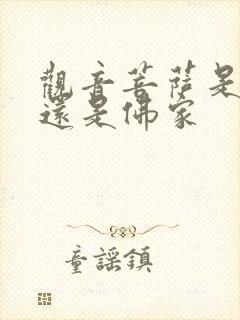 觀音菩薩是
還是佛家
童謠鎮